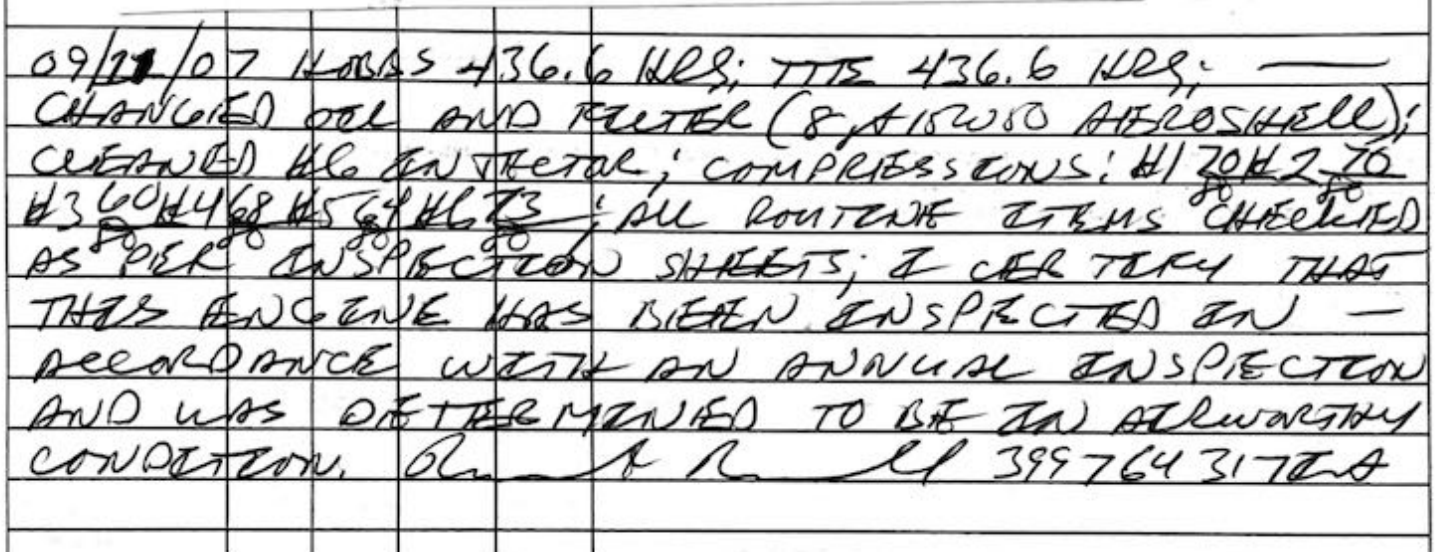 09/21/07 HOBBS 436.6 HRS; TTE 436.6 HRS; —
CHANGED OIL AND FILTER (8, A15W50 AEROSHELL);
CLEANED #6 INJECTOR; COMPRESSIONS: #1 70/80 #2 70/80
#3 60/80 #4 68/80 #5 64/80 #6 73/80; ALL ROUTINE ITEMS CHECKED
AS PER INSPECTION SHEETS; I CERTIFY THAT
THIS ENGINE HAS BEEN INSPECTED IN —
ACCORDANCE WITH AN ANNUAL INSPECTION
AND WAS DETERMINED TO BE IN AIRWORTHY
CONDITION. 399764317IA